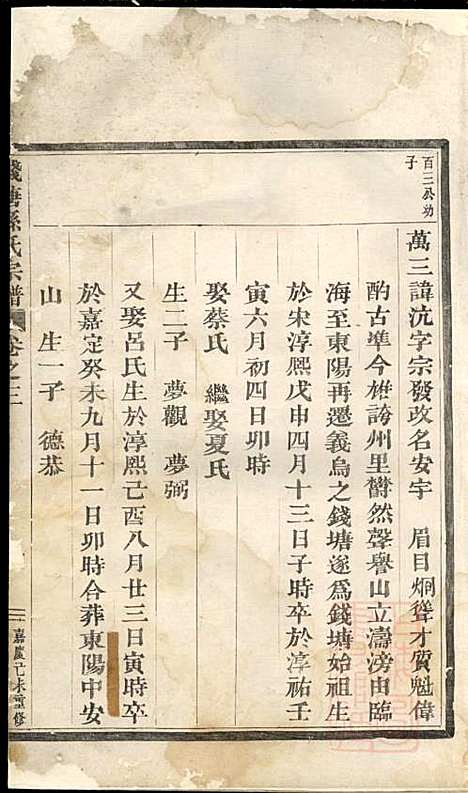 百三公幼
子
萬三諱沇字宗發改名安宇 眉目炯聳才質魁偉
酌古準今 誇州里欝然聲譽山立濤滂由臨
海至東陽再遷義烏之錢塘遂爲錢塘始祖生
於宋淳熙戊申四月十三日子時卒於淳祐壬
寅六月初四日卯時
娶蔡氏 繼娶夏氏
生二子 夢觀 夢弼
又娶呂氏生於淳熙己酉八月廿三日寅時卒
於嘉定癸未九月十一日卯時合葬東陽中安
山 生一子 德恭
錢塘孫氏宗譜 卷之三
一 嘉慶己未重修